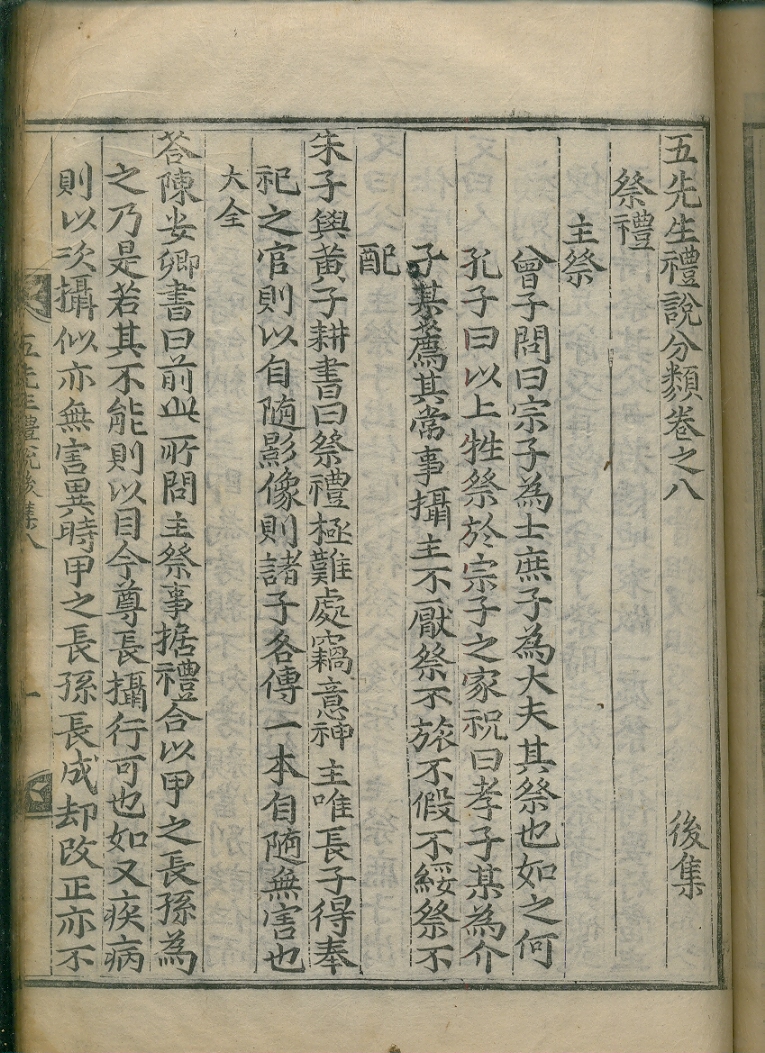 五先生禮說分類卷之八
後集
祭禮
主祭
曾子問曰宗子為士庶子為大夫其祭也如之何
孔子曰以上牲祭於宗子之家祝曰孝子某為介
子某薦其常事攝主不厭祭不旅不假不綏祭不
配
朱子與黃子耕書曰祭禮極難處竊意神主唯長子得奉
祀之官則以自隨影像則諸子各傳一本自隨無害也
大全
答陳安卿書曰前此所問主祭事据禮合以甲之長孫為
之乃是若其不能則以目今尊長攝行可也如又疾病
則以次攝似亦無害異時甲之長孫長成却改正亦不
五先生禮說後集八
一